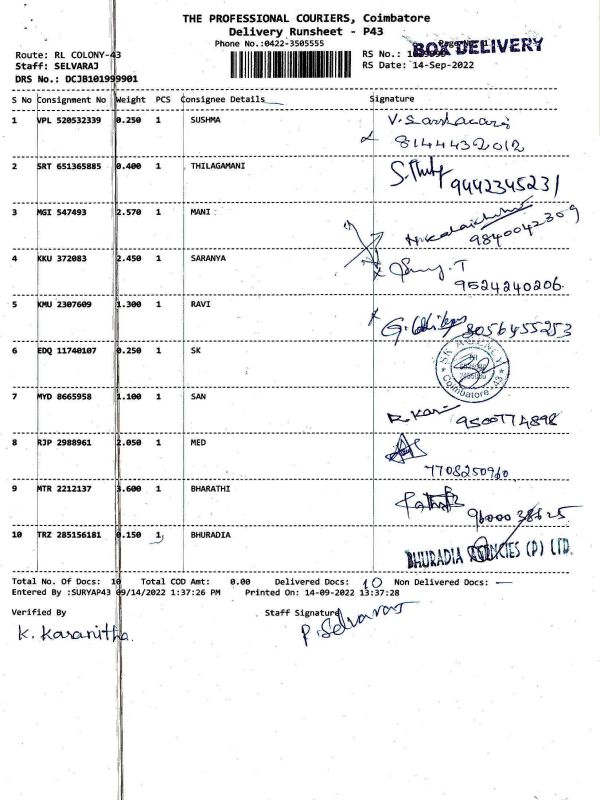 THE PROFESSIONAL COURIERS, Coimbatore
Delivery Runsheet - P43
Phone No.:0422-3505555
BOX DELIVERY
Route: RL COLONY-43
RS No.:
Staff: SELVARAJ
RS Date: 14-Sep-2022
DRS No.: DCJB101999901
S No Consignment No Weight PCS Consignee Details Signature
1 VPL 520532339 0.250 1 SUSHMA
8144432012
2 SRT 651365885 0.400 1 THILAGAMANI
9442345231
3 MGI 547493 2.570 1 MANI
9840042309
4 KKU 372083 2.450 1 SARANYA
9524240206
5 KMU 2307609 1.300 1 RAVI
8056455253
6 EDQ 11740107 0.250 1 SK
SK AGENCY Coimbatore - 43
7 MYD 8665958 1.100 1 SAN
9500774898
8 RJP 2988961 2.050 1 MED
7708250960
9 MTR 2212137 3.600 1 BHARATHI
10 TRZ 285156181 0.150 1 BHURADIA
BHURADIA AGENCIES (P) LTD.
Total No. Of Docs: 10 Total COD Amt: 0.00 Delivered Docs: 10 Non Delivered Docs: —
Entered By :SURYAP43 09/14/2022 1:37:26 PM Printed On: 14-09-2022 13:37:28
Verified By Staff Signature
K. Karanitha P. Selvaraj